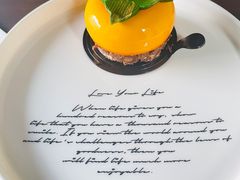 Love Your Life
When life gives you a
hundred reasons to cry, show
life that you have a thousand reasons to
smile. If you view the world around you
and life's challenges through the lens of
goodness, then you
will find life much more
enjoyable.